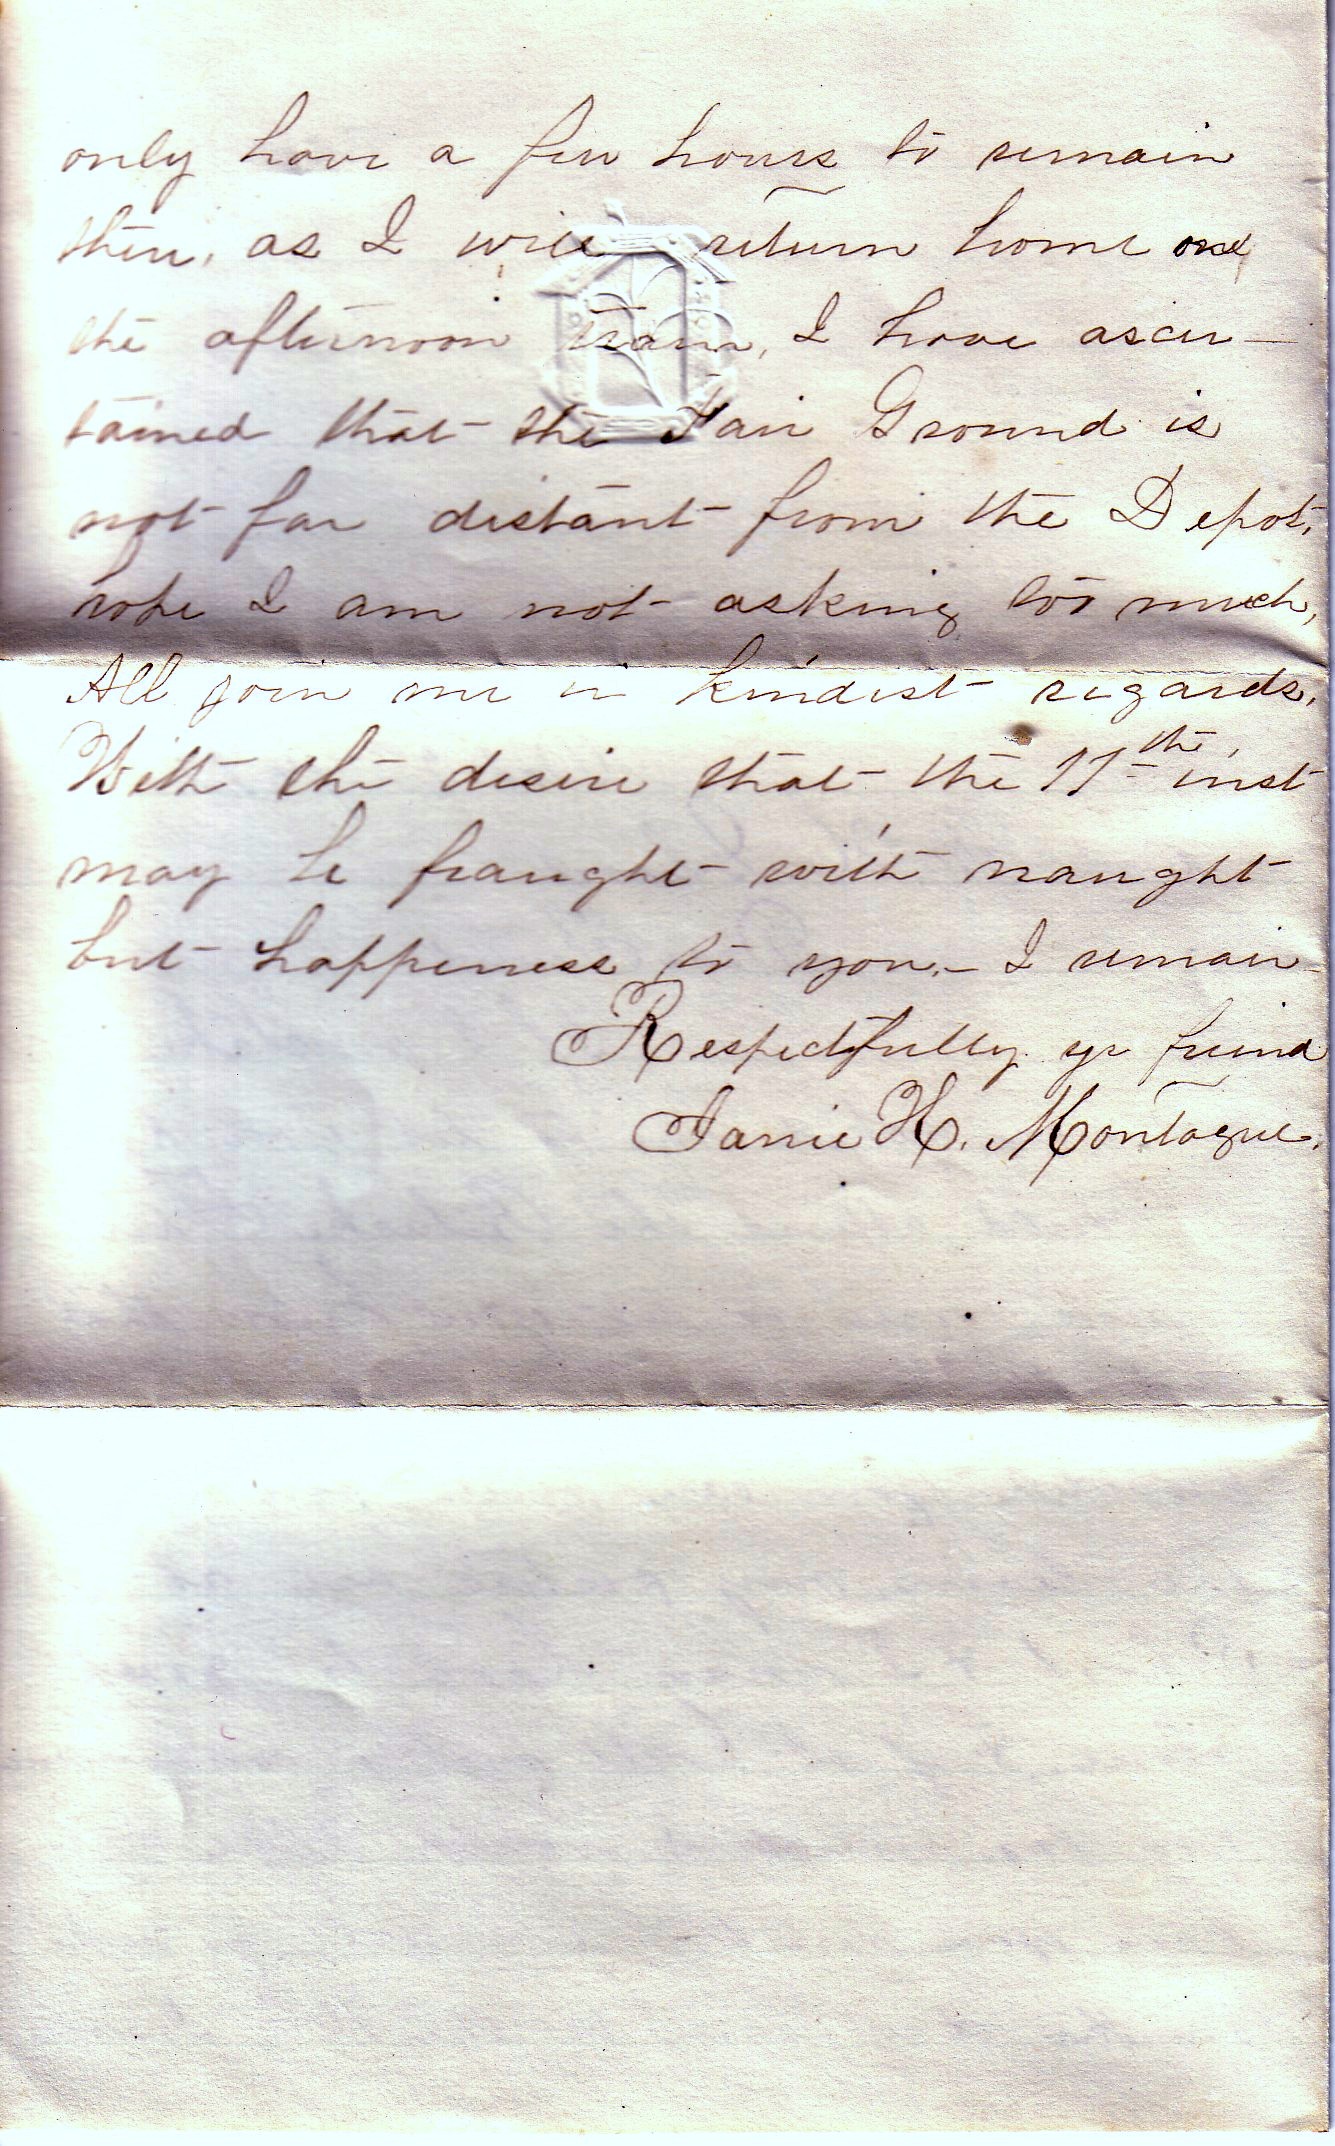 only have a few hours to remain
there, as I will return home on
the afternoon train, I have ascer-
tained that the Fair Ground is
not far distant from the Depot,
hope I am not asking too much,
All join me in kindest regards,
With the desire that the 11th inst
may be fraught with naught
but happiness to you,- I remain
Respectfully yr friend
Janie H. Montague.